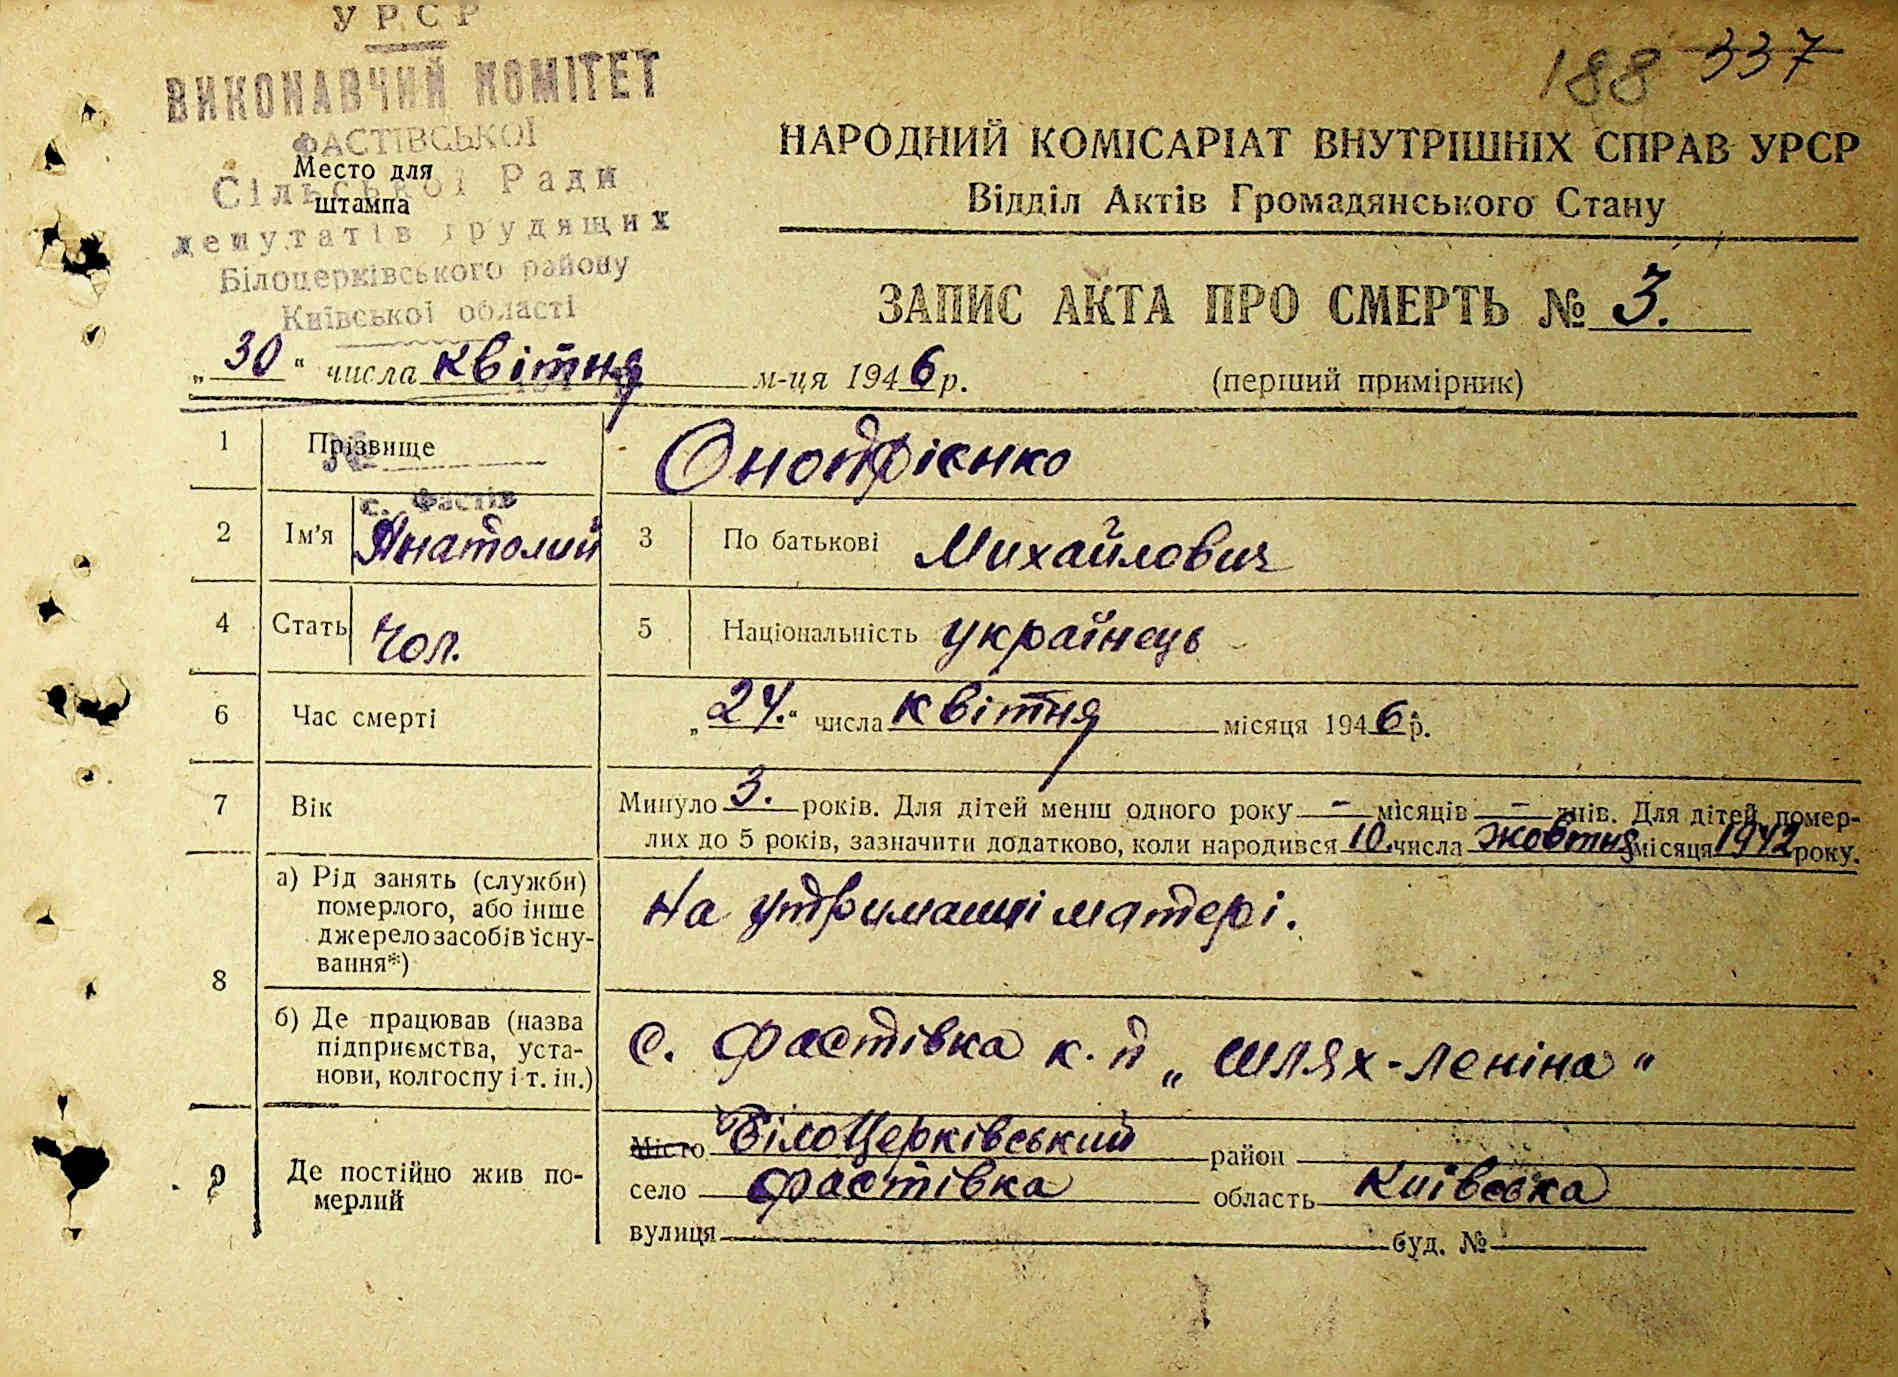 УРСР
188 337
ВИКОНАВЧИЙ КОМІТЕТ
ФАСТІВСЬКОЇ
Место для
штампа
Сільської Ради
депутатів трудящих
Білоцерківського району
Київської області
НАРОДНИЙ КОМІСАРІАТ ВНУТРІШНІХ СПРАВ УРСР
Відділ Актів Громадянського Стану
ЗАПИС АКТА ПРО СМЕРТЬ № 3.
„30“ числа квітня м-ця 1946 р.
(перший примірник)
1 Прізвище Онопрієнко
№
с. Фастів
2 Ім'я Анатолий 3 По батькові Михайлович
4 Стать Чол. 5 Національність українець
6 Час смерті „24.“ числа квітня місяця 1946 р.
7 Вік Минуло 3. років. Для дітей менш одного року - місяців - днів. Для дітей, помер-
лих до 5 років, зазначити додатково, коли народився 10. числа жовтня місяця 1942 року.
8 а) Рід занять (служби)
померлого, або інше
джерело засобів існу-
вання*)
На утриманні матері.
б) Де працював (назва
підприємства, уста-
нови, колгоспу і т. ін.)
С. Фастівка к. п „Шлях-Леніна"
9 Де постійно жив по-
мерлий
Місто БілоЦерківський район
село Фастівка область Київська
вулиця буд. №